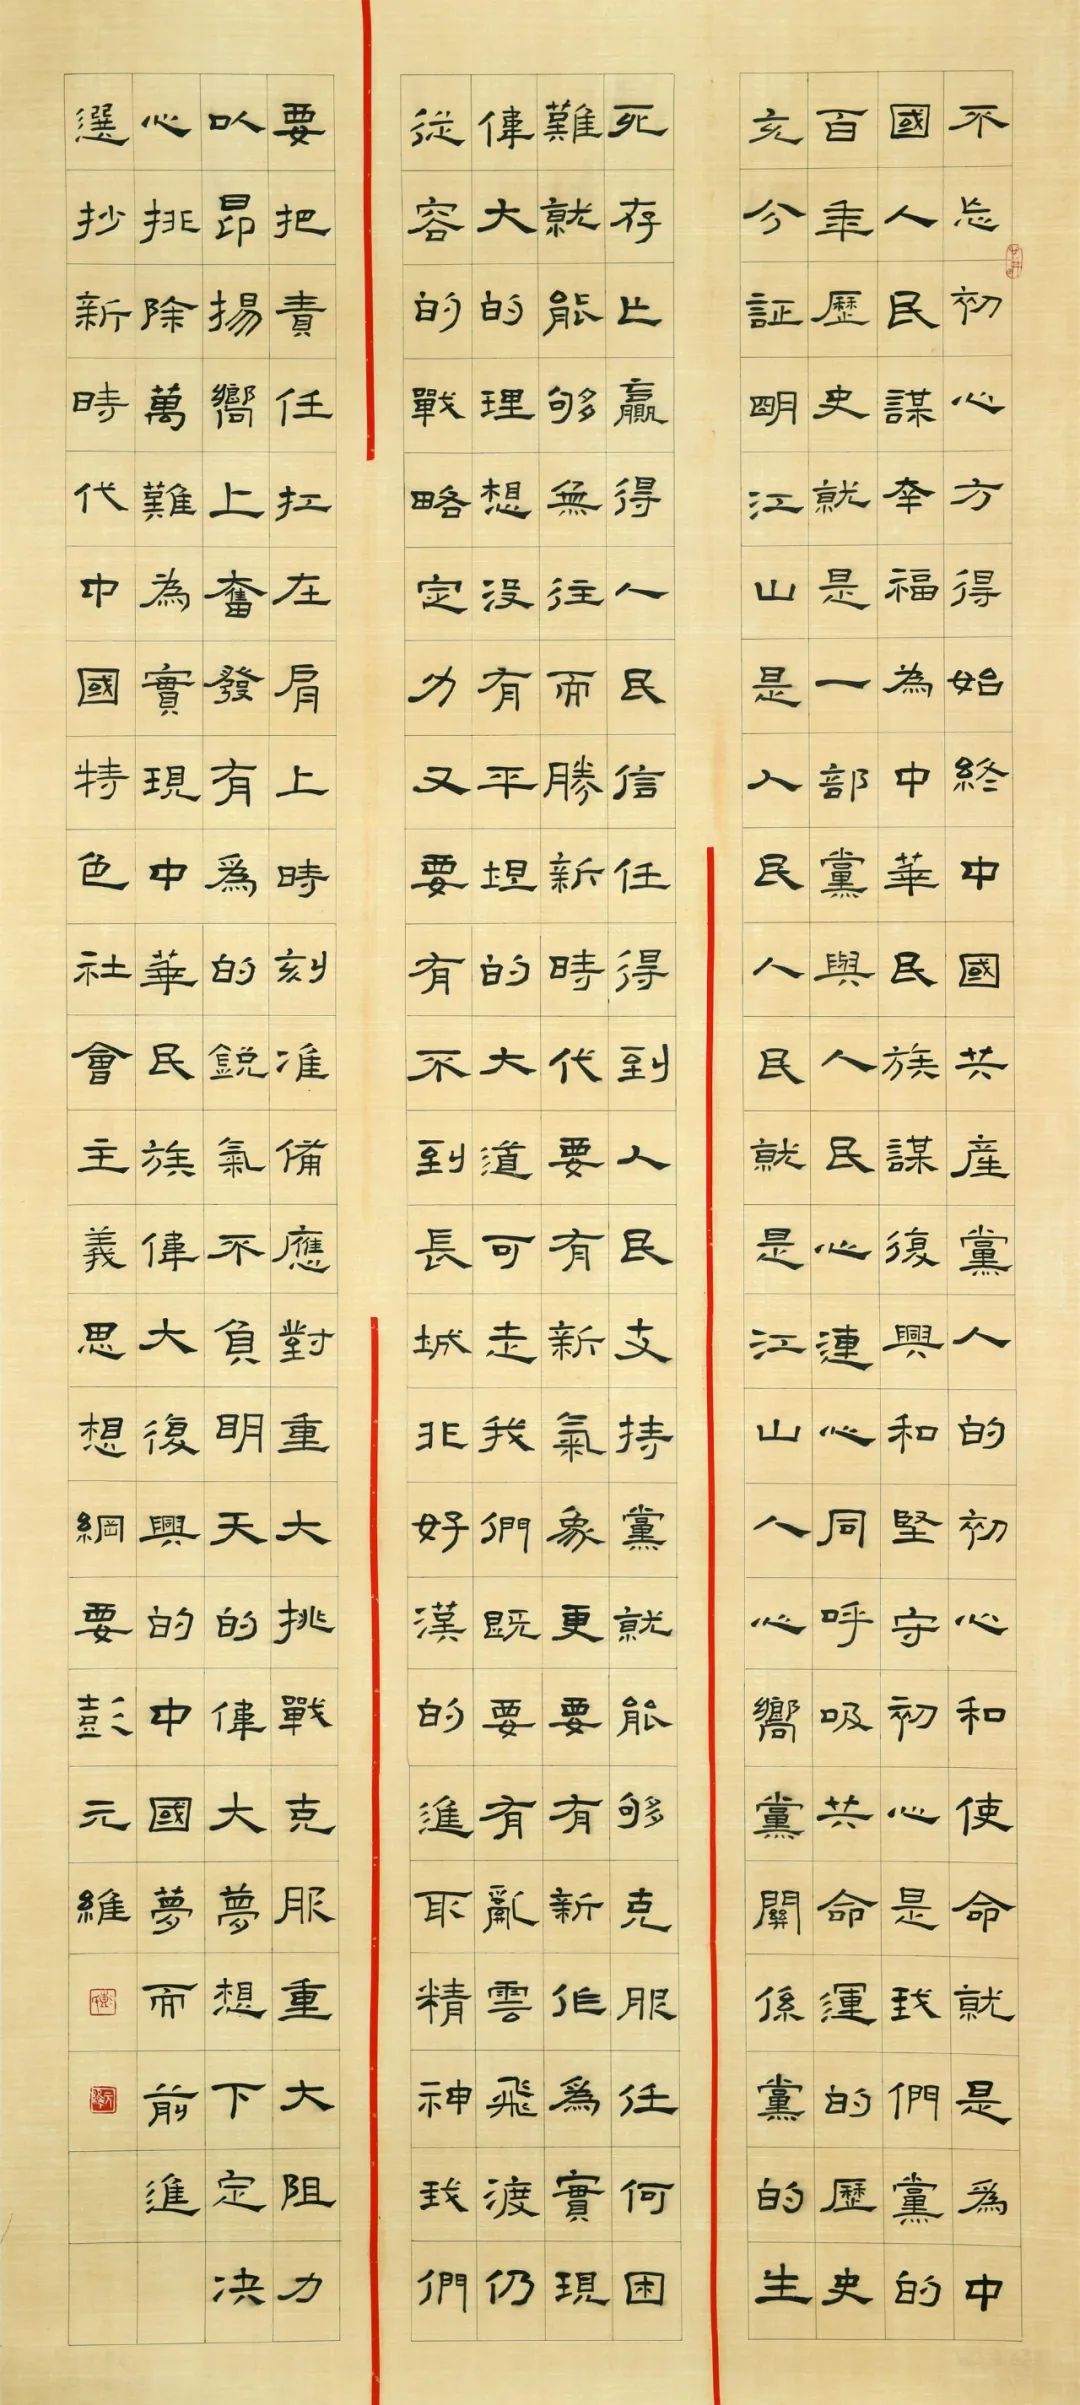 不忘初心方得始終中國共產黨人的初心和使命就是爲中
國人民謀幸福為中華民族謀復興和堅守初心是我們黨的
百年歷史就是一部黨與人民心連心同呼吸共命運的歷史
充分証明江山是人民人民就是江山人心嚮黨關係黨的生
死存亡贏得人民信任得到人民支持黨就能够克服任何困
難就能够無往而勝新時代要有新氣象更要有新作爲實現
偉大的理想没有平坦的大道可走我們既要有亂雲飛渡仍
從容的戰略定力又要有不到長城非好漢的進取精神我們
要把責任扛在肩上時刻准備應對重大挑戰克服重大阻力
以昂揚嚮上奮發有爲的鋭氣不負明天的偉大夢想下定决
心排除萬難為實現中華民族偉大復興的中國夢而前進
選抄新時代中國特色社會主義思想綱要彭元維